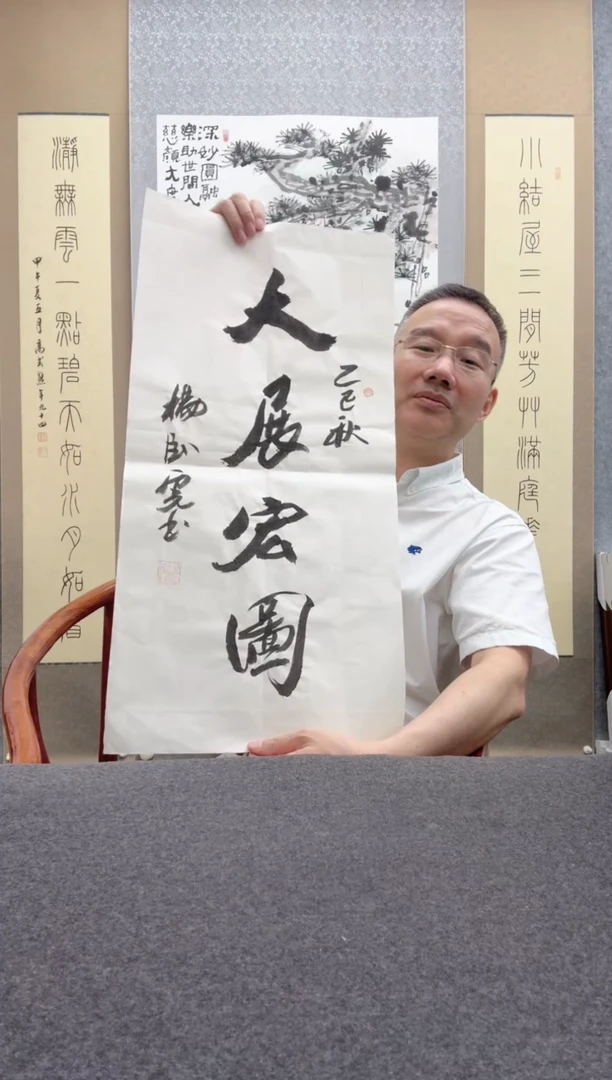 小結屋三間芳艸滿庭
深妙圓融
樂助世間人
慈顏大
乙巳秋
大展宏圖
楊卧雲书
瀞無雲一點碧天如水月如眉
甲午夏五月高式熊年九十四